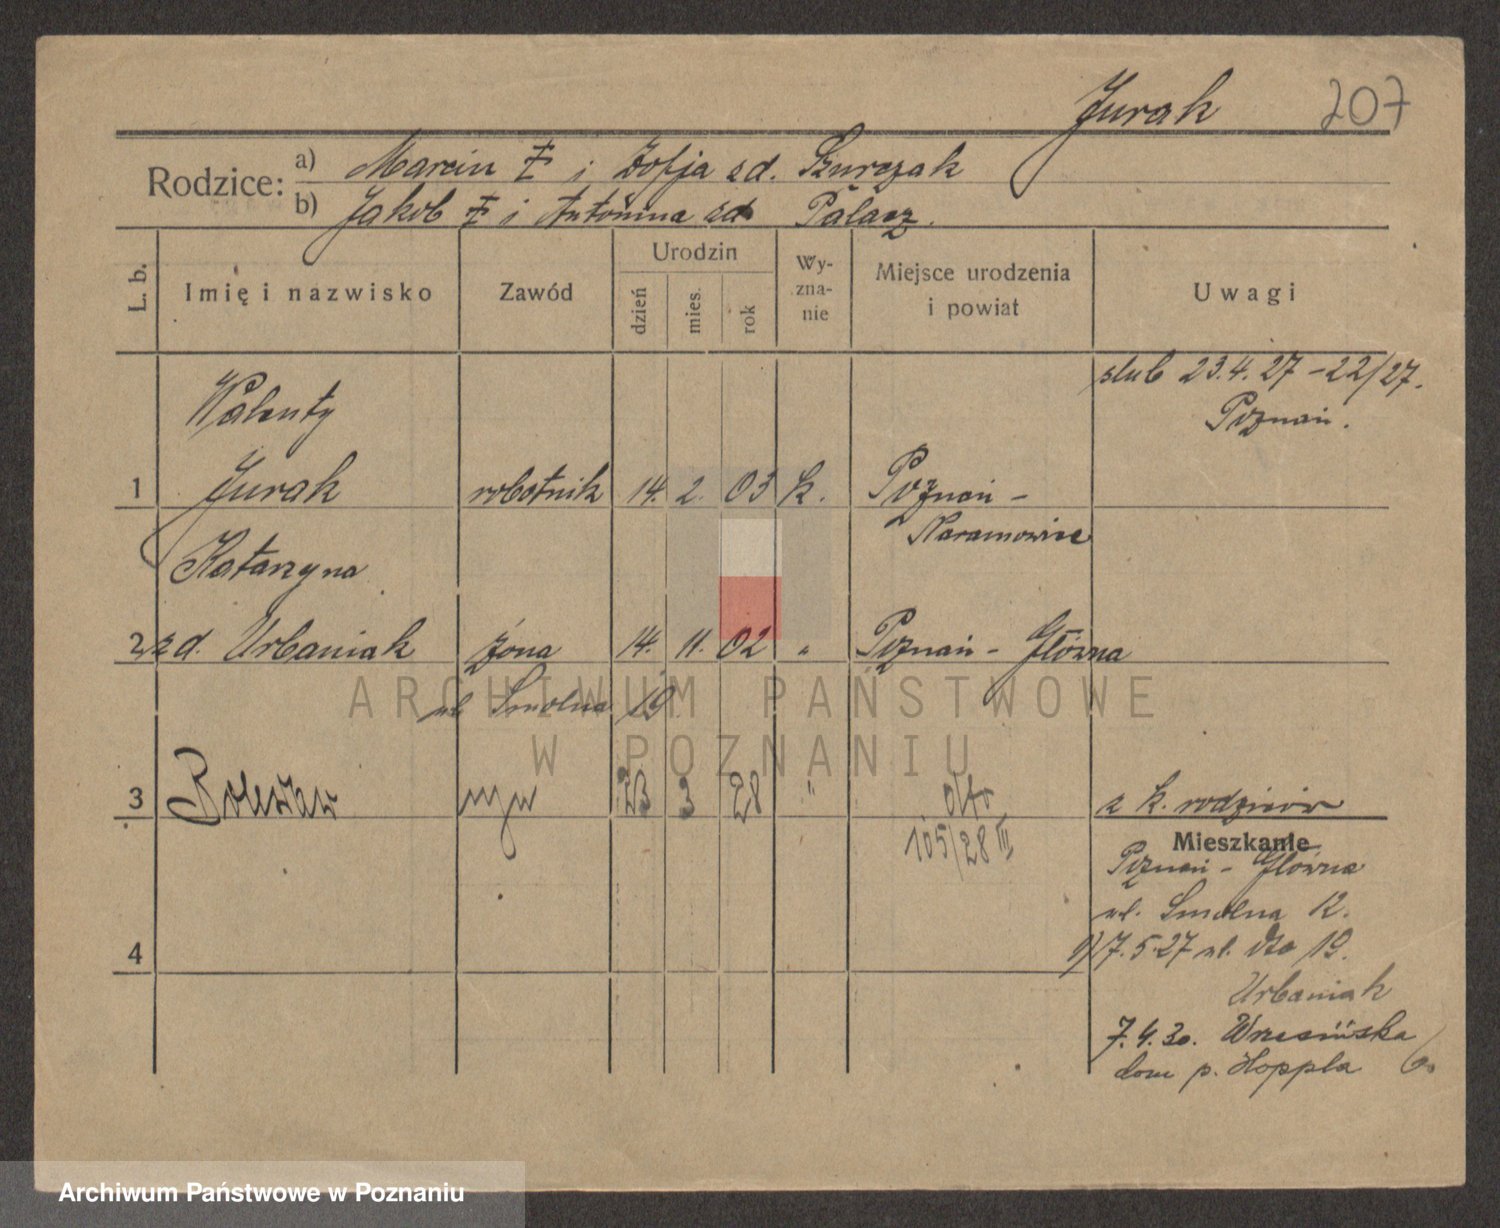 Jurak 207
Rodzice: a) Marcin i Zofja zd. Szurczak
b) Jakob i Antonina zd. Palacz.
L. b. Imię i nazwisko Zawód Urodzin dzień mies. rok Wy-zna-nie Miejsce urodzenia i powiat Uwagi
ślub 23.4.27 - 22/27.
Walenty Poznań.
1 Jurak robotnik 14. 2. 03 k. Poznań -
Naramowice
Katarzyna
2 zd. Urbaniak żona 14. 11. 02 „ Poznań - Główna
ul Smolna 19
ARCHIWUM PAŃSTWOWE
W POZNANIU
3 Bolesław syn 23 3 28 " z k. rodziców
105/28 III
Mieszkanie
Poznań - Główna
ul. Smolna 12.
7.5.27 ul. 19.
4
Urbaniak
7.4.30. Wrzesińska 6.
dom p. Hoppla
Archiwum Państwowe w Poznaniu